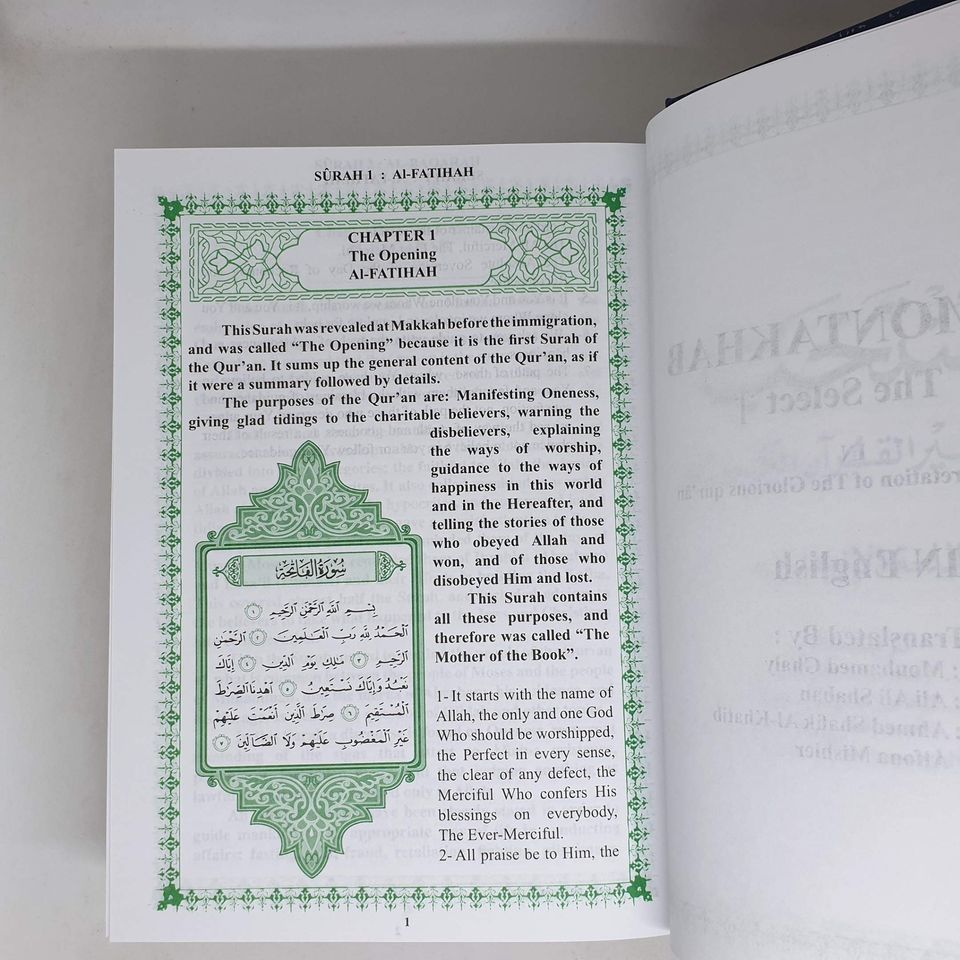 SÛRAH 1 : Al-FATIHAH
CHAPTER 1
The Opening
Al-FATIHAH
This Surah was revealed at Makkah before the immigration,
and was called “The Opening” because it is the first Surah of
the Qur’an. It sums up the general content of the Qur’an, as if
it were a summary followed by details.
The purposes of the Qur’an are: Manifesting Oneness,
giving glad tidings to the charitable believers, warning the
disbelievers, explaining
the ways of worship,
guidance to the ways of
happiness in this world
and in the Hereafter, and
telling the stories of those
who obeyed Allah and
won, and of those who
disobeyed Him and lost.
This Surah contains
all these purposes, and
therefore was called “The
Mother of the Book”.
سُورَةُ الْفَاتِحَةِ
بِسْمِ ٱللَّهِ ٱلرَّحْمَٰنِ ٱلرَّحِيمِ ١
ٱلْحَمْدُ لِلَّهِ رَبِّ ٱلْعَٰلَمِينَ ٢ ٱلرَّحْمَٰنِ
ٱلرَّحِيمِ ٣ مَٰلِكِ يَوْمِ ٱلدِّينِ ٤ إِيَّاكَ
نَعْبُدُ وَإِيَّاكَ نَسْتَعِينُ ٥ ٱهْدِنَا ٱلصِّرَٰطَ
ٱلْمُسْتَقِيمَ ٦ صِرَٰطَ ٱلَّذِينَ أَنْعَمْتَ عَلَيْهِمْ
غَيْرِ ٱلْمَغْضُوبِ عَلَيْهِمْ وَلَا ٱلضَّآلِّينَ ٧
1- It starts with the name of
Allah, the only and one God
Who should be worshipped,
the Perfect in every sense,
the clear of any defect, the
Merciful Who confers His
blessings on everybody,
The Ever-Merciful.
2- All praise be to Him, the
1
MONTAKHAB
The Select
retation of The Glorious qur’ān
IN English
Translated By :
: Mouhamed Ghaly
: Ali Ali Shaban
: Ahmed Shafik Al-Khatib